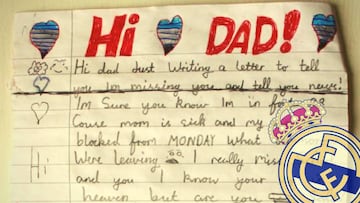 Hi DAD!
Hi dad Just Writing a letter to tell
you Im missing you and tell you news!
I'm Sure you know Im in
Couse mom is sick and my
blocked from MONDAY What
Hi Were leaving I really miss
and you I know your
heaven but are you